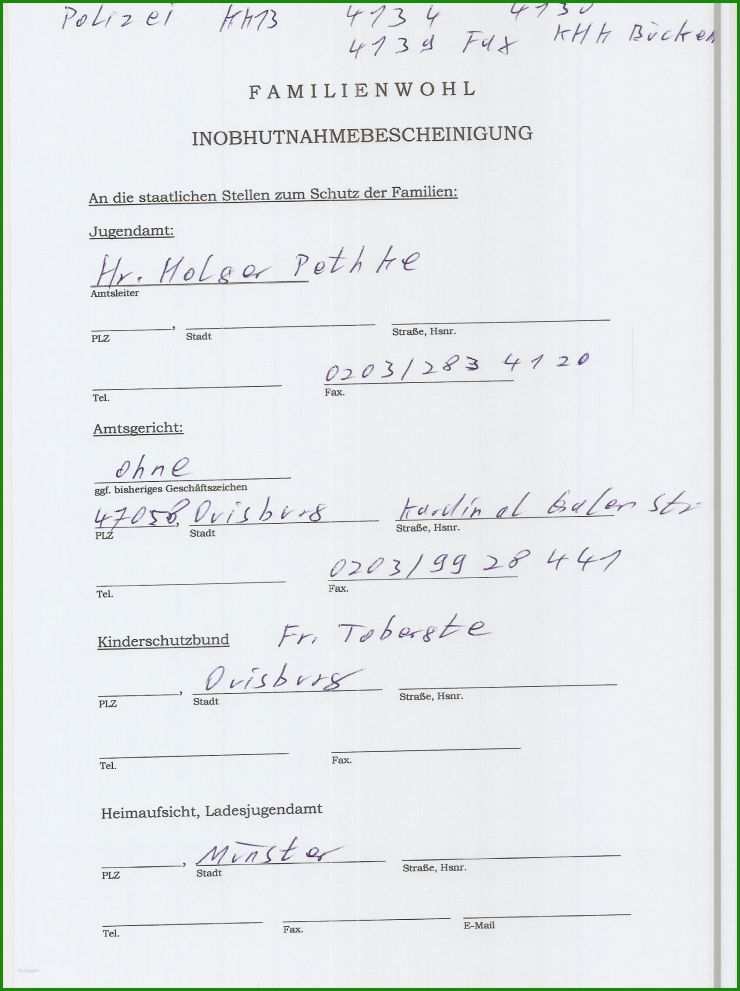 Polizei KK13 4134 4130
4139 Fax KHK Bücken
FAMILIENWOHL
INOBHUTNAHMEBESCHEINIGUNG
An die staatlichen Stellen zum Schutz der Familien:
Jugendamt:
Hr. Holger Pethke
Amtsleiter
,
PLZ Stadt Straße, Hsnr.
0203/283 4120
Tel. Fax.
Amtsgericht:
ohne
ggf. bisheriges Geschäftszeichen
47058, Duisburg Kardinal Galen Str
PLZ Stadt Straße, Hsnr.
0203/99 28 441
Tel. Fax.
Kinderschutzbund Fr. Tobergte
, Duisburg
PLZ Stadt Straße, Hsnr.
Tel. Fax.
Heimaufsicht, Ladesjugendamt
, Münster
PLZ Stadt Straße, Hsnr.
Tel. Fax. E-Mail